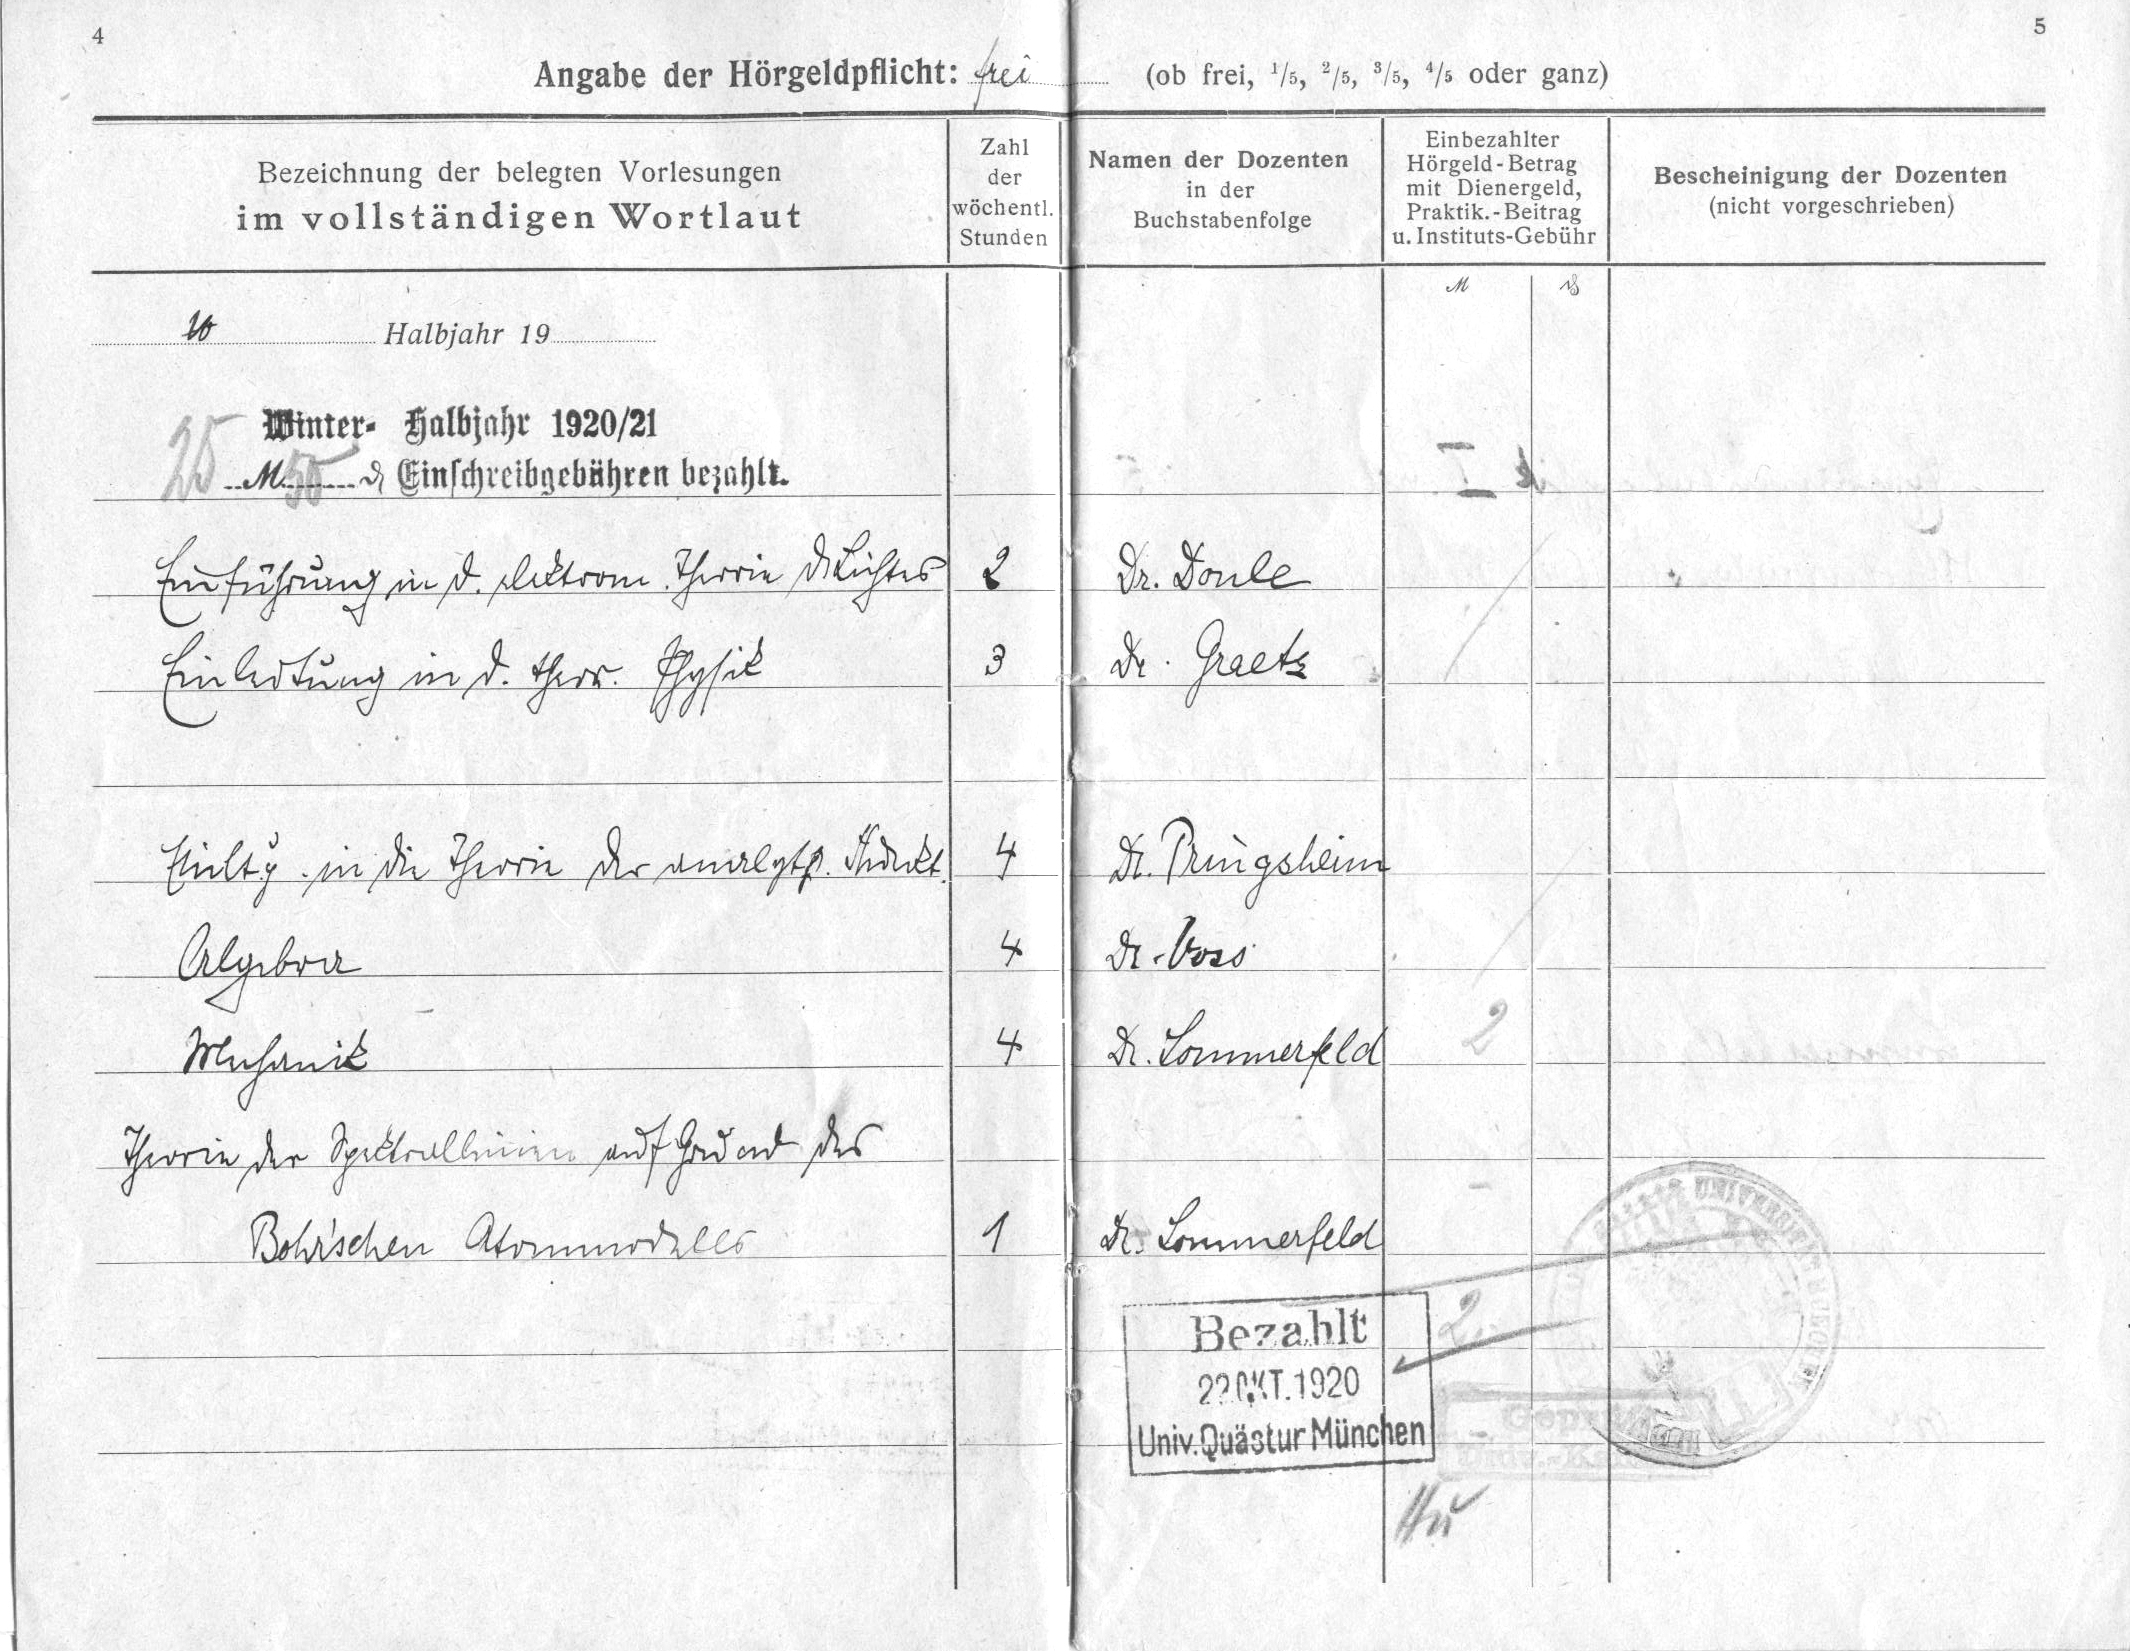 4
5
Angabe der Hörgeldpflicht: frei (ob frei, 1/5, 2/5, 3/5, 4/5 oder ganz)
Bezeichnung der belegten Vorlesungen
im vollständigen Wortlaut
Zahl
der
wöchentl.
Stunden
Namen der Dozenten
in der
Buchstabenfolge
Einbezahlter
Hörgeld-Betrag
mit Dienergeld,
Praktik.-Beitrag
u. Instituts-Gebühr
Bescheinigung der Dozenten
(nicht vorgeschrieben)
M ₰
Halbjahr 19
Winter- Halbjahr 1920/21
25 M 50 ₰ Einschreibgebühren bezahlt.
I
Einführung in d. elektrom. Theorie d. Lichtes 2 Dr. Donle
Einleitung in d. theor. Physik 3 Dr. Graetz
Einltg. in die Theorie der analyt. Funkt. 4 Dr. Pringsheim
Algebra 4 Dr. Voss
Mechanik 4 Dr. Sommerfeld 2
Theorie der Spektrallinien auf Grund des
Bohr'schen Atommodelles 1 Dr. Sommerfeld
Bezahlt
22 OKT. 1920
Univ. Quästur München
2.